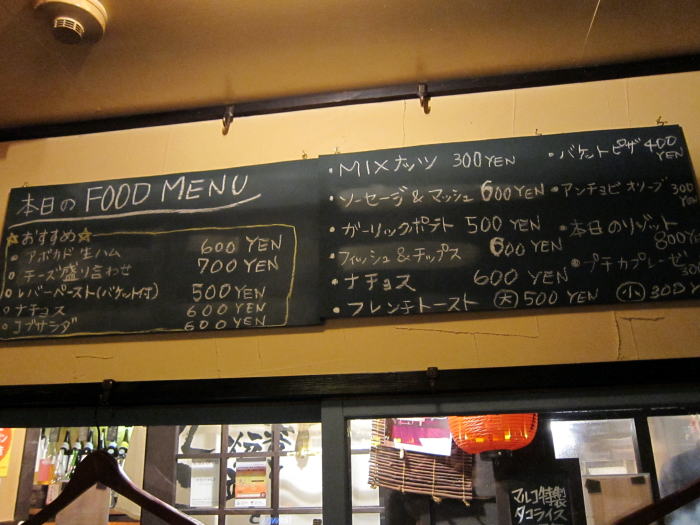 本日の FOOD MENU
☆おすすめ☆
• アボカド生ハム 600 YEN
• チーズ盛り合わせ 700 YEN
• レバーペースト(バケット付) 500 YEN
• ナチョス 600 YEN
• コブサラダ 600 YEN
• MIXナッツ 300 YEN
• ソーセージ&マッシュ 600 YEN
• ガーリックポテト 500 YEN
• フィッシュ&チップス 600 YEN
• ナチョス 600 YEN
• フレンチトースト 大 500 YEN 小 300 YEN
• バケットピザ 400 YEN
• アンチョビオリーブ 300 YEN
• 本日のリゾット 800 YEN
• プチカプレーゼ 300
マルコ特製
タコライス